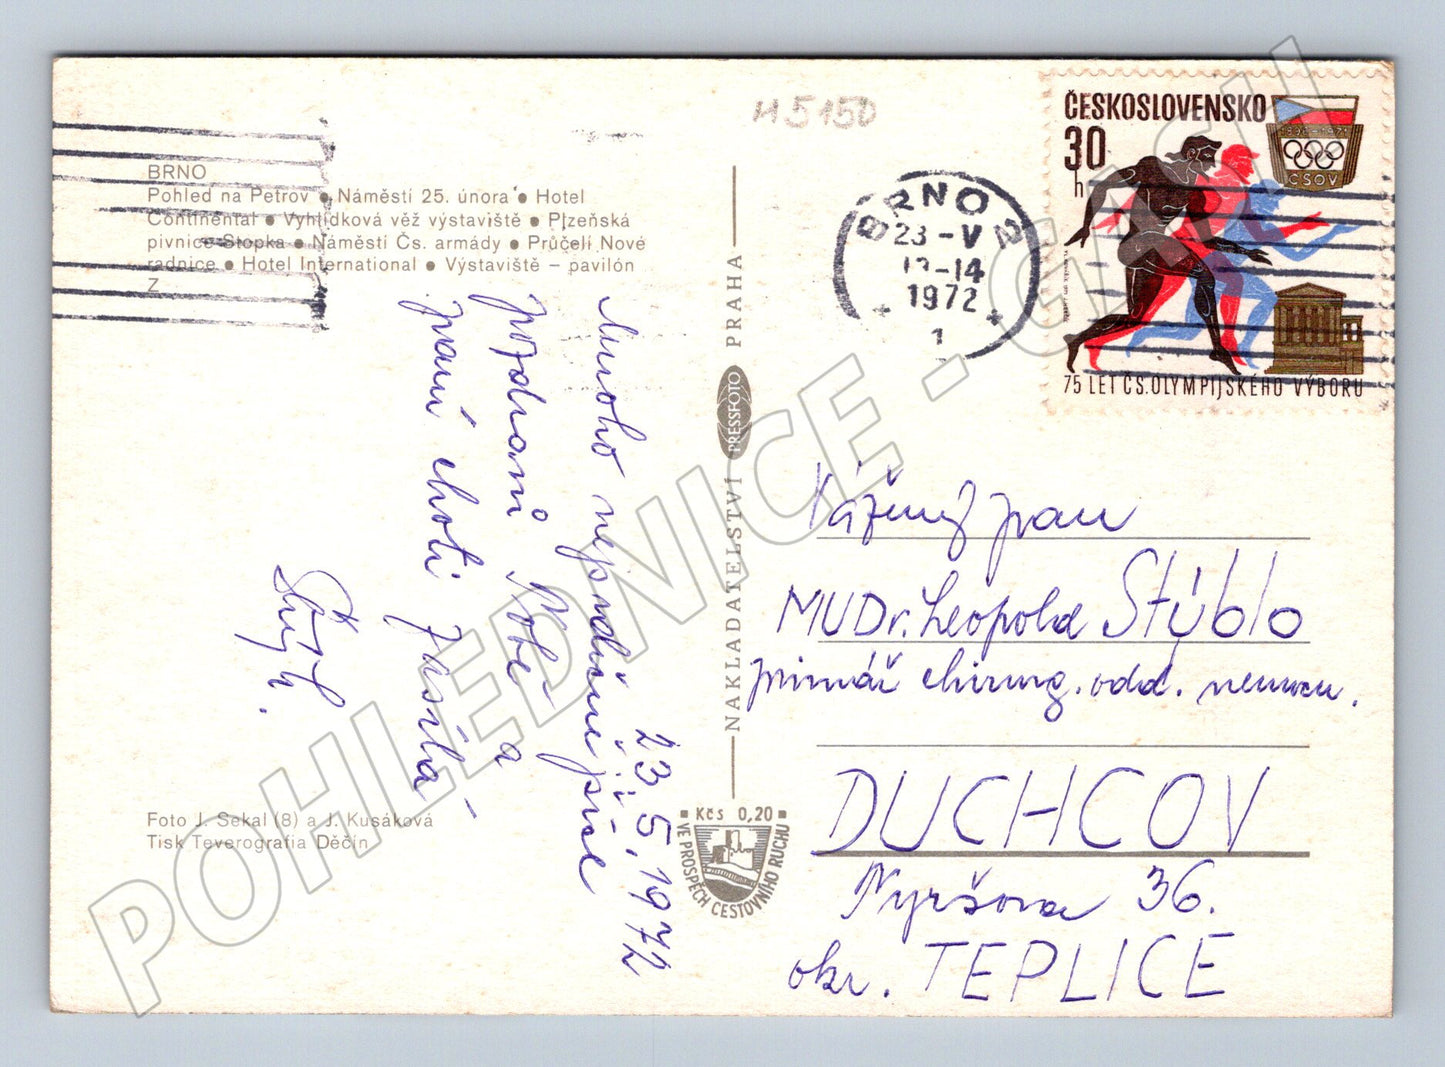 M5150
BRNO
Pohled na Petrov ● Náměstí 25. února ● Hotel
Continental ● Vyhlídková věž výstaviště ● Plzeňská
pivnice Stopka ● Náměstí Čs. armády ● Průčelí Nové
radnice ● Hotel International ● Výstaviště – pavilón
Z
23.5.1972
Mnoho nejsrdečnější
pozdravů Tobě a
paní choti zasílá
Foto J. Sekal (8) a J. Kusáková
Tisk Teverografia Děčín
NAKLADATELSTVÍ PRESSFOTO PRAHA
Kčs 0,20
VE PROSPĚCH CESTOVNÍHO RUCHU
BRNO 2
23 -V
13-14
1972
1
ČESKOSLOVENSKO
30
h
1896-1971
ČSOV
75 LET ČS. OLYMPIJSKÉHO VÝBORU
Vážený pan
MUDr. Leopold Stýblo
primář chirurg. odd. nemocn.
DUCHCOV
Nyršova 36.
okr. TEPLICE
POHLEDNICE - CASH